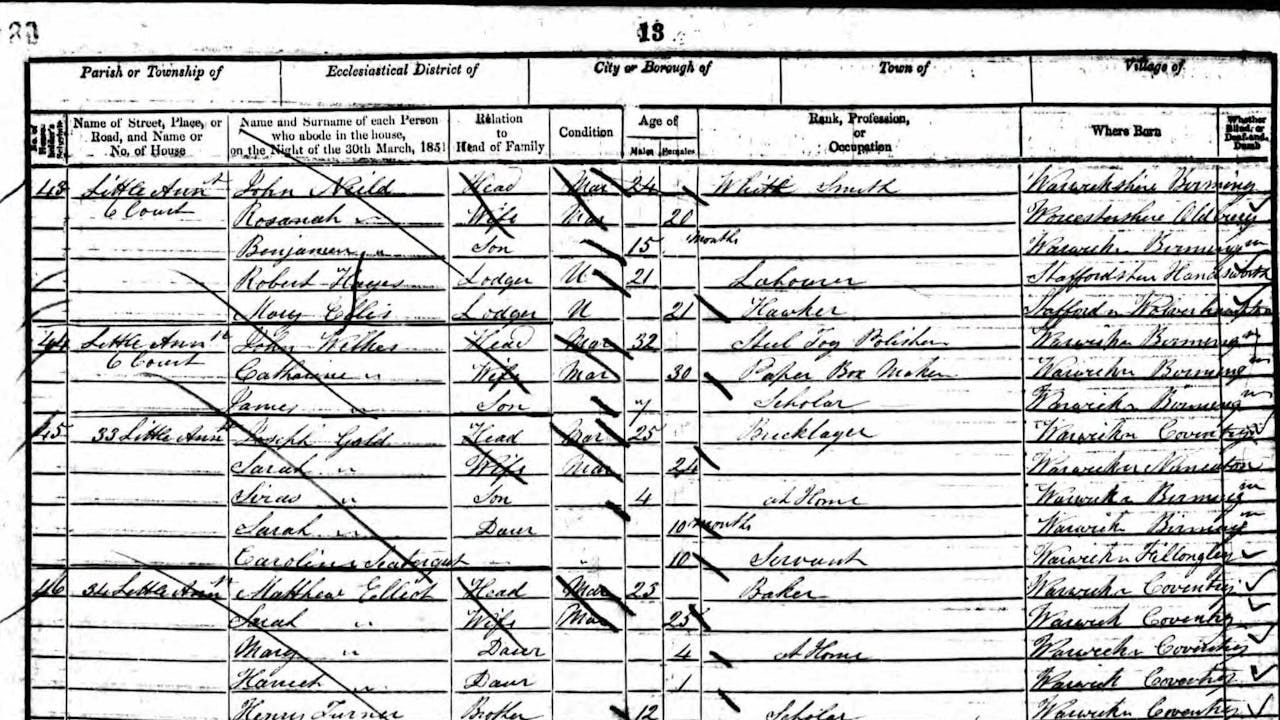 13
Parish or Township of Ecclesiastical District of City or Borough of Town of Village of
Name of Street, Place, or Road, and Name or No. of House
Name and Surname of each Person who abode in the house, on the Night of the 30th March, 1851
Relation to Head of Family
Condition
Age of
Males Females
Rank, Profession, or Occupation
Where Born
Whether Blind, or Deaf-and-Dumb
43 Little Ann St John Neild Head Mar 24 White Smith Warwickshire Birming
6 Court Rosanah " Wife Mar 20 Worcestershire Oldbury
Benjamin " Son 15 months Warwick Birmingm
Robert Hayes Lodger U 21 Labourer Staffordshire Handsworth
Mary Lodger U 21 Hawker Stafford Wolverhampton
44 Little Ann St John Wilkes Head Mar 32 Steel Toy Polisher Warwick Birmingm
6 Court Catharine " Wife Mar 30 Paper Box Maker Warwick Birmingm
James " Son 7 Scholar Warwick Birmingm
45 33 Little Ann St Joseph Gald Head Mar 25 Bricklayer Warwick Coventry
Sarah " Wife Mar 24 Warwick Nuneaton
" Son 4 at Home Warwick Birmingm
Sarah " Daur 10 months Warwick Birmingm
Caroline 10 Servant Warwick Fillongley
46 34 Little Ann St Matthew Elliot Head Mar 25 Baker Warwick Coventry
Sarah " Wife Mar 25 Warwick Coventry
Mary " Daur 4 At Home Warwick Coventry
Harriet " Daur 1 Warwick Coventry
Henry Turner Brother 12 Scholar Warwick Coventry